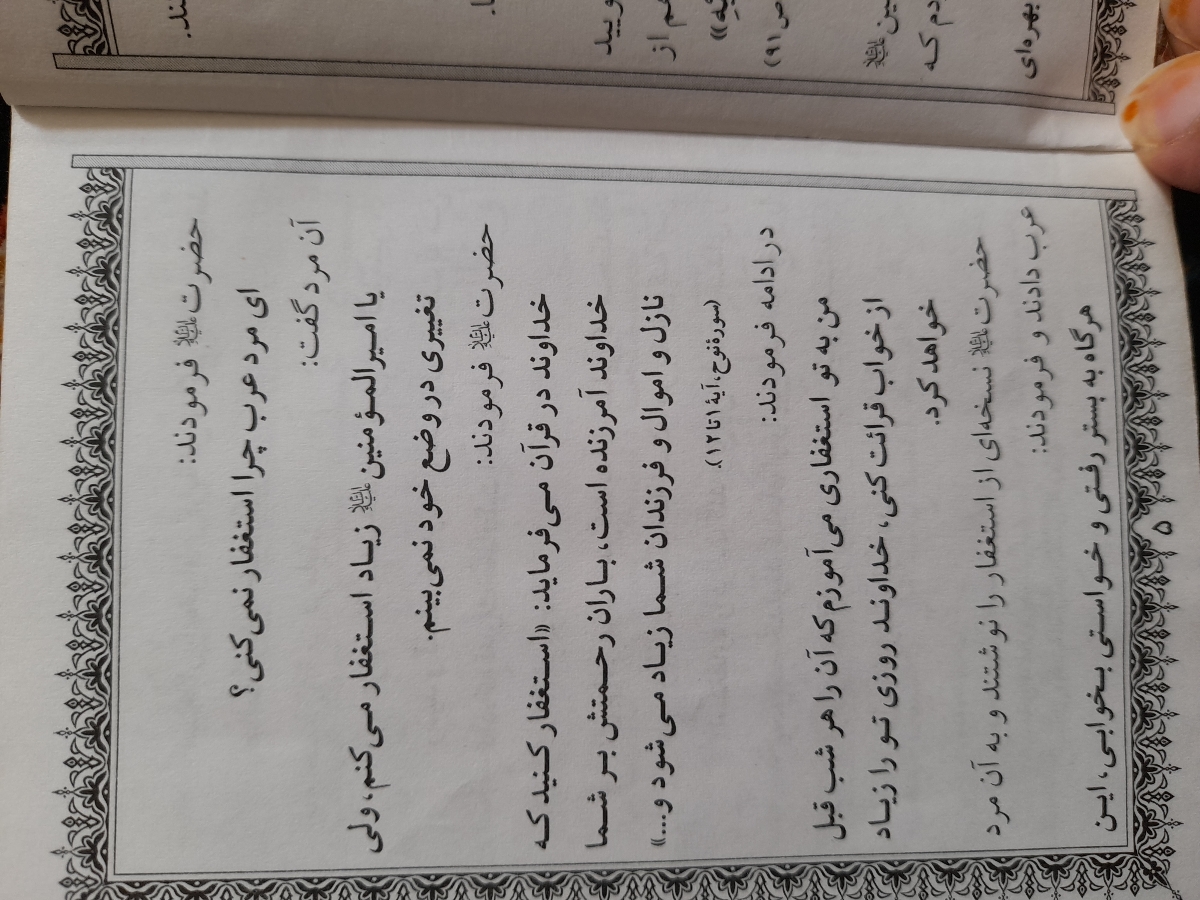 حضرت ﷼ فرمودند:
ای مرد عرب چرا استغفار نمی‌کنی؟
آن مرد گفت:
یا امیرالمؤمنین زیاد استغفار می‌کنم، ولی
تغییری در وضع خود نمی‌بینم.
حضرت فرمودند:
خداوند در قرآن می‌فرماید: «استغفار کنید که
خداوند آمرزنده است، باران رحمتش بر شما
نازل و اموال و فرزندان شما زیاد می‌شود و...»
(سورهٔ نوح، آیهٔ ۱ تا ۱۲).
در ادامه فرمودند:
من به تو استغفاری می‌آموزم که آن را هر شب قبل
از خواب قرائت کنی، خداوند روزی تو را زیاد
خواهد کرد.
حضرت نسخه‌ای از استغفار را نوشتند و به آن مرد
عرب دادند و فرمودند:
هرگاه به بستر رفتی و خواستی بخوابی، این
۵
ص ۹۱)
دم که
بهره‌ای